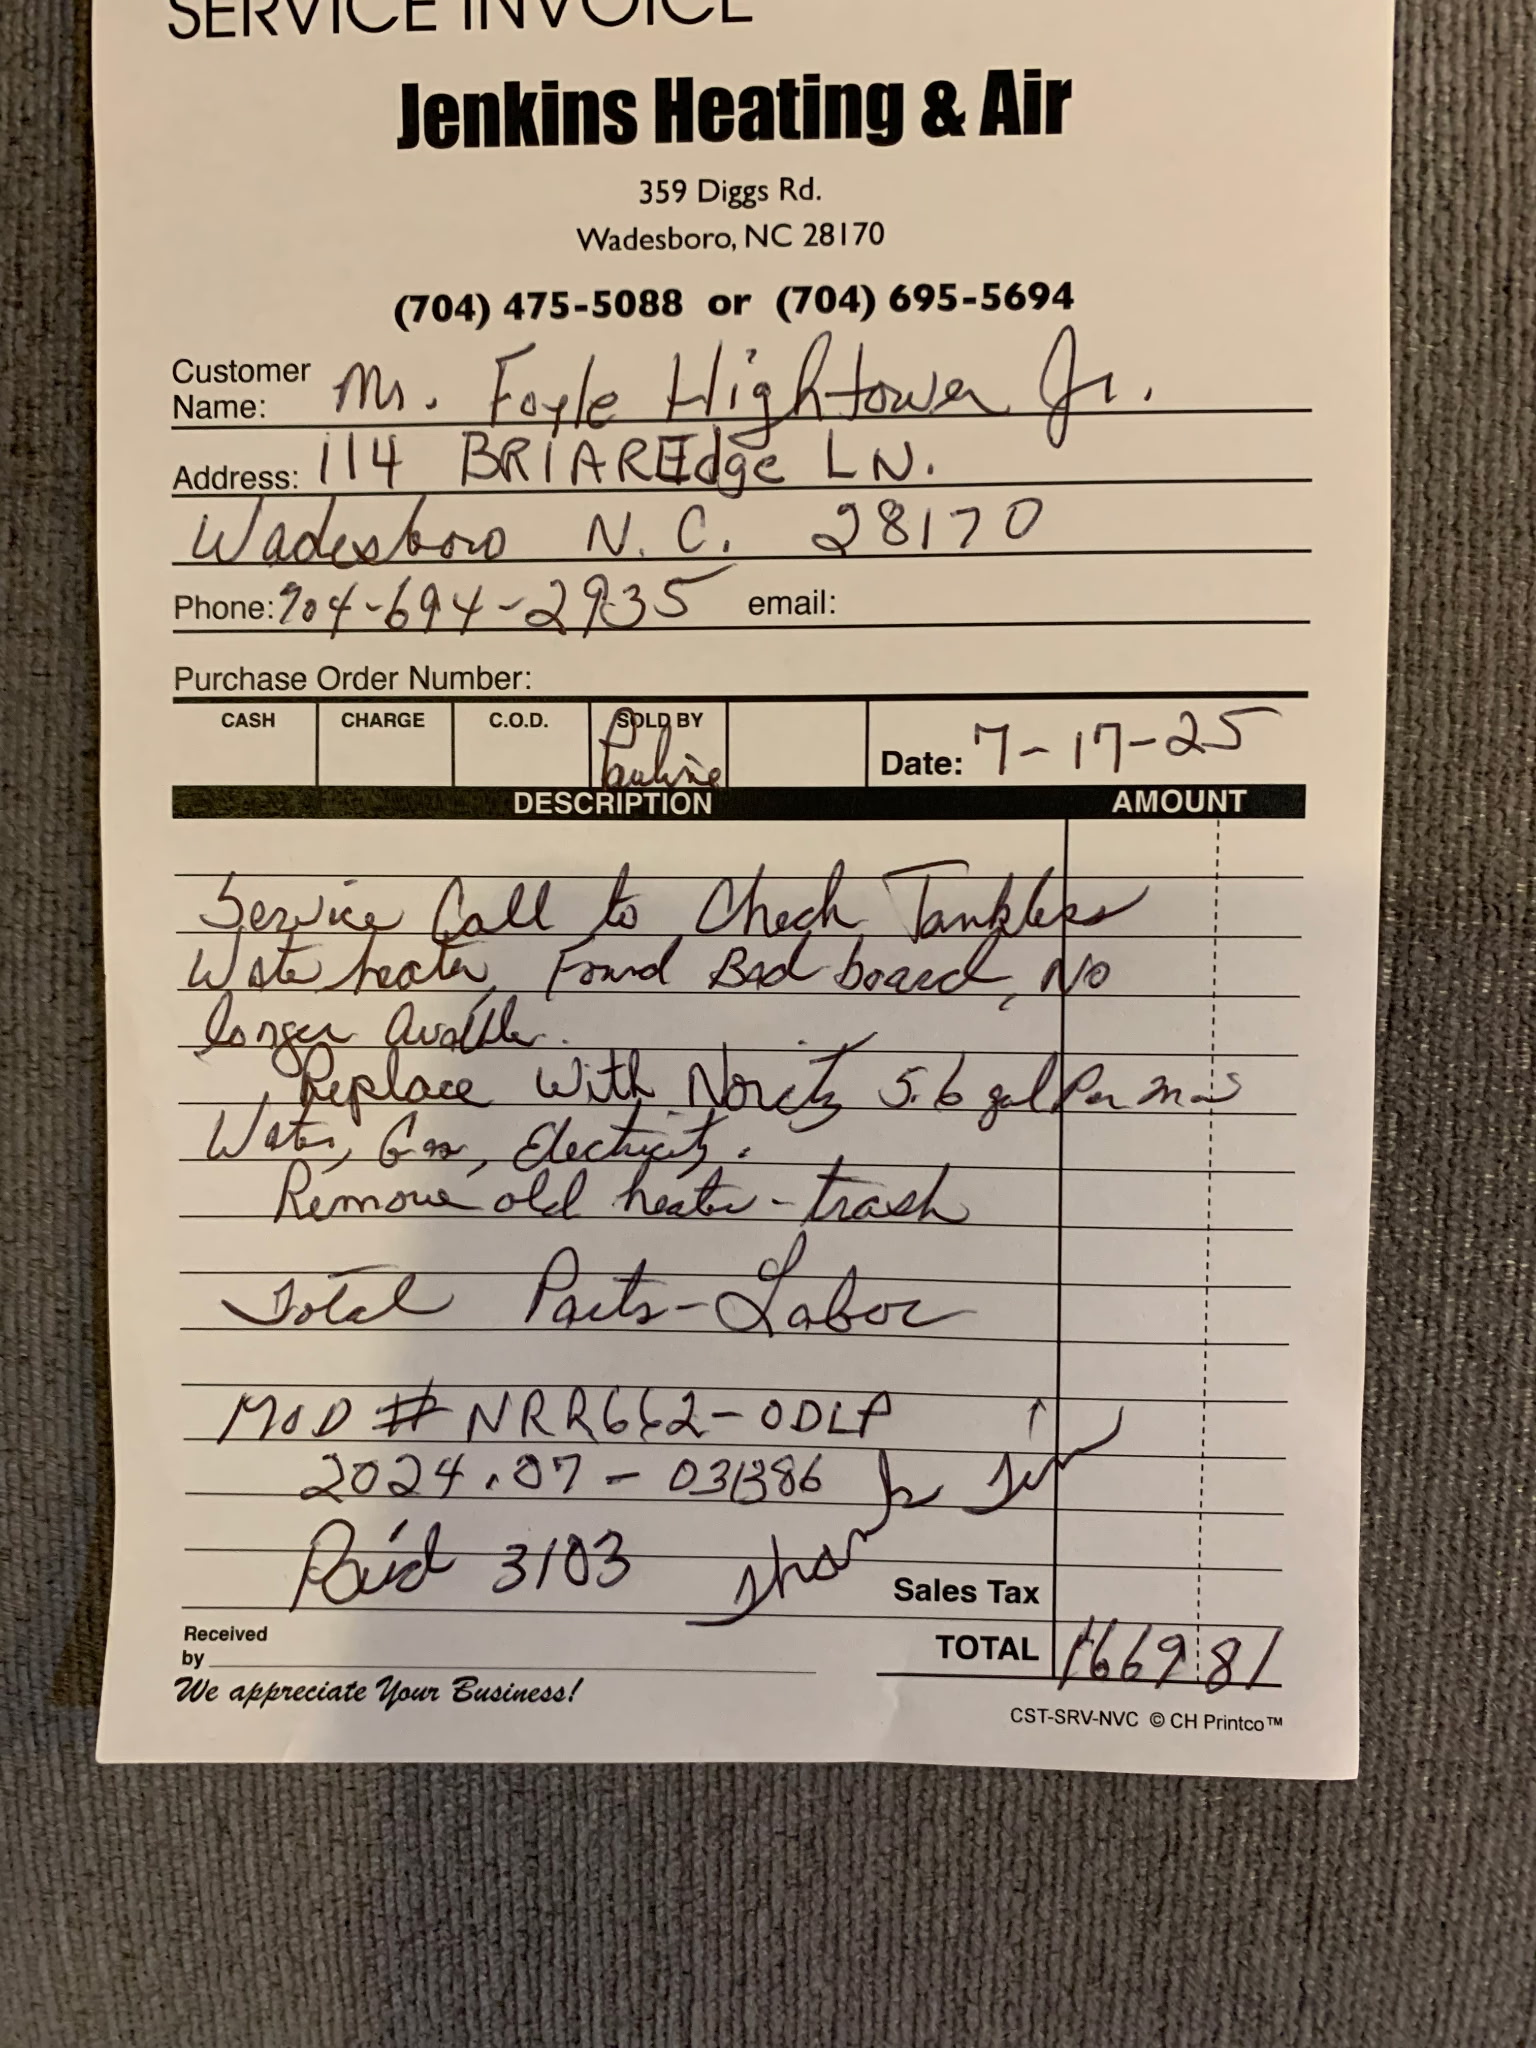 SERVICE INVOICE
Jenkins Heating & Air
359 Diggs Rd.
Wadesboro, NC 28170
(704) 475-5088 or (704) 695-5694
Customer Name: Mr. Foyle Hightower Jr.
Address: 114 BRIAREdge LN.
Wadesboro N.C. 28170
Phone: 704-694-2935 email:
Purchase Order Number:
CASH CHARGE C.O.D. SOLD BY Pauline Date: 7-17-25
DESCRIPTION AMOUNT
Service Call to Check Tankless
Water heater, Found Bad board, No
longer
Replace With Noritz 5.6 gal Per
Water, Gas, Electricity.
Remove old heater - trash
Total Parts - Labor
MOD # NRR662-ODLP
2024.07-
Paid 3103 Thank
Sales Tax
TOTAL 1669 81
Received by
We appreciate Your Business!
CST-SRV-NVC © CH Printco™